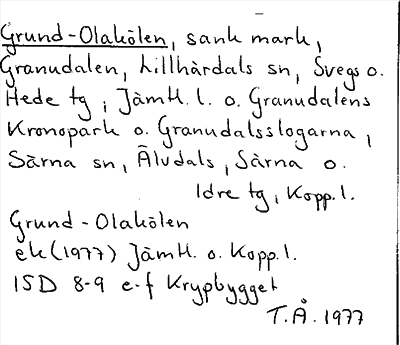 Grund-Olakölen, sank mark,
Granudalen, Lillhärdals sn, Svegs o.
Hede tg, Jämtl. l. o. Granudalens
Kronopark o. Granudalsslogarna,
Särna sn, Älvdals, Särna o.
Idre tg, Kopp. l.
Grund-Olakölen
ek (1977) Jämtl. o. Kopp. l.
ISD 8-9 e-f Krypbygget
T.Å. 1977